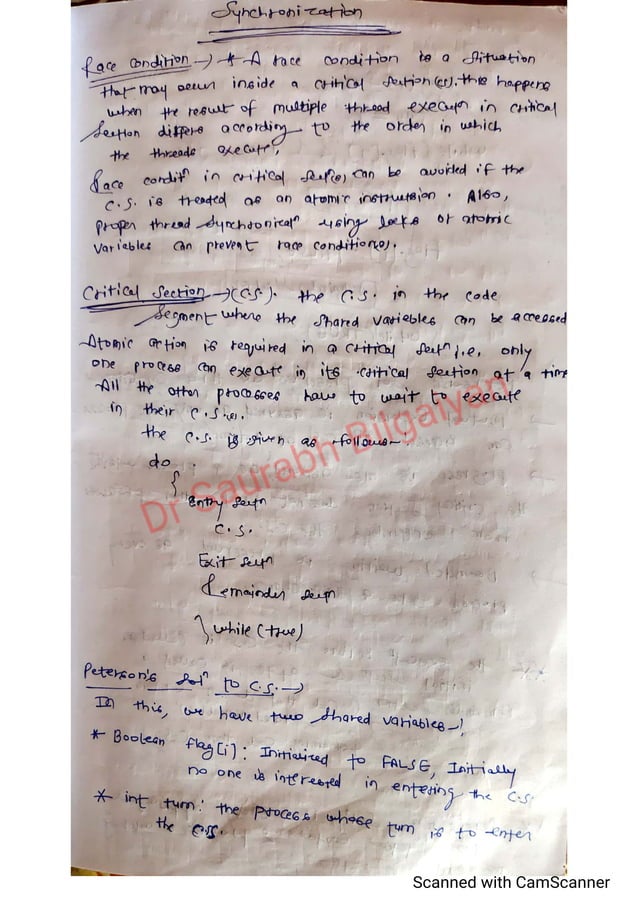 Synchronization
Race Condition → * A race condition is a situation
that may occur inside a critical section(cs). this happens
when the result of multiple thread execun in critical
section differs according to the order in which
the threads execute.
Race conditn in critical sectn(s) can be avoided if the
C.S. is treated as an atomic instruction. Also,
proper thread synchronicatn using locks or atomic
variables can prevent race condition(s).
Critical Section → (C.S.). the C.S. in the code
segment where the shared variables can be accessed
Atomic action is required in a critical sectn i.e. only
one process can execute in its critical section at a time
All the other processes have to wait to execute
in their C.S.(s).
the C.S. is given as follows-
do
{
Entry sectn
C.S.
Exit sectn
Remainder sectn
} while (true)
Dr Saurabh Bilgaiyan
Peterson's soln to C.S. →
In this, we have two shared variables-
* Boolean flag[i] : Initialized to FALSE, Initially
no one is interested in entering the C.S.
* int turn: the process whose turn is to enter
the C.S.
Scanned with CamScanner